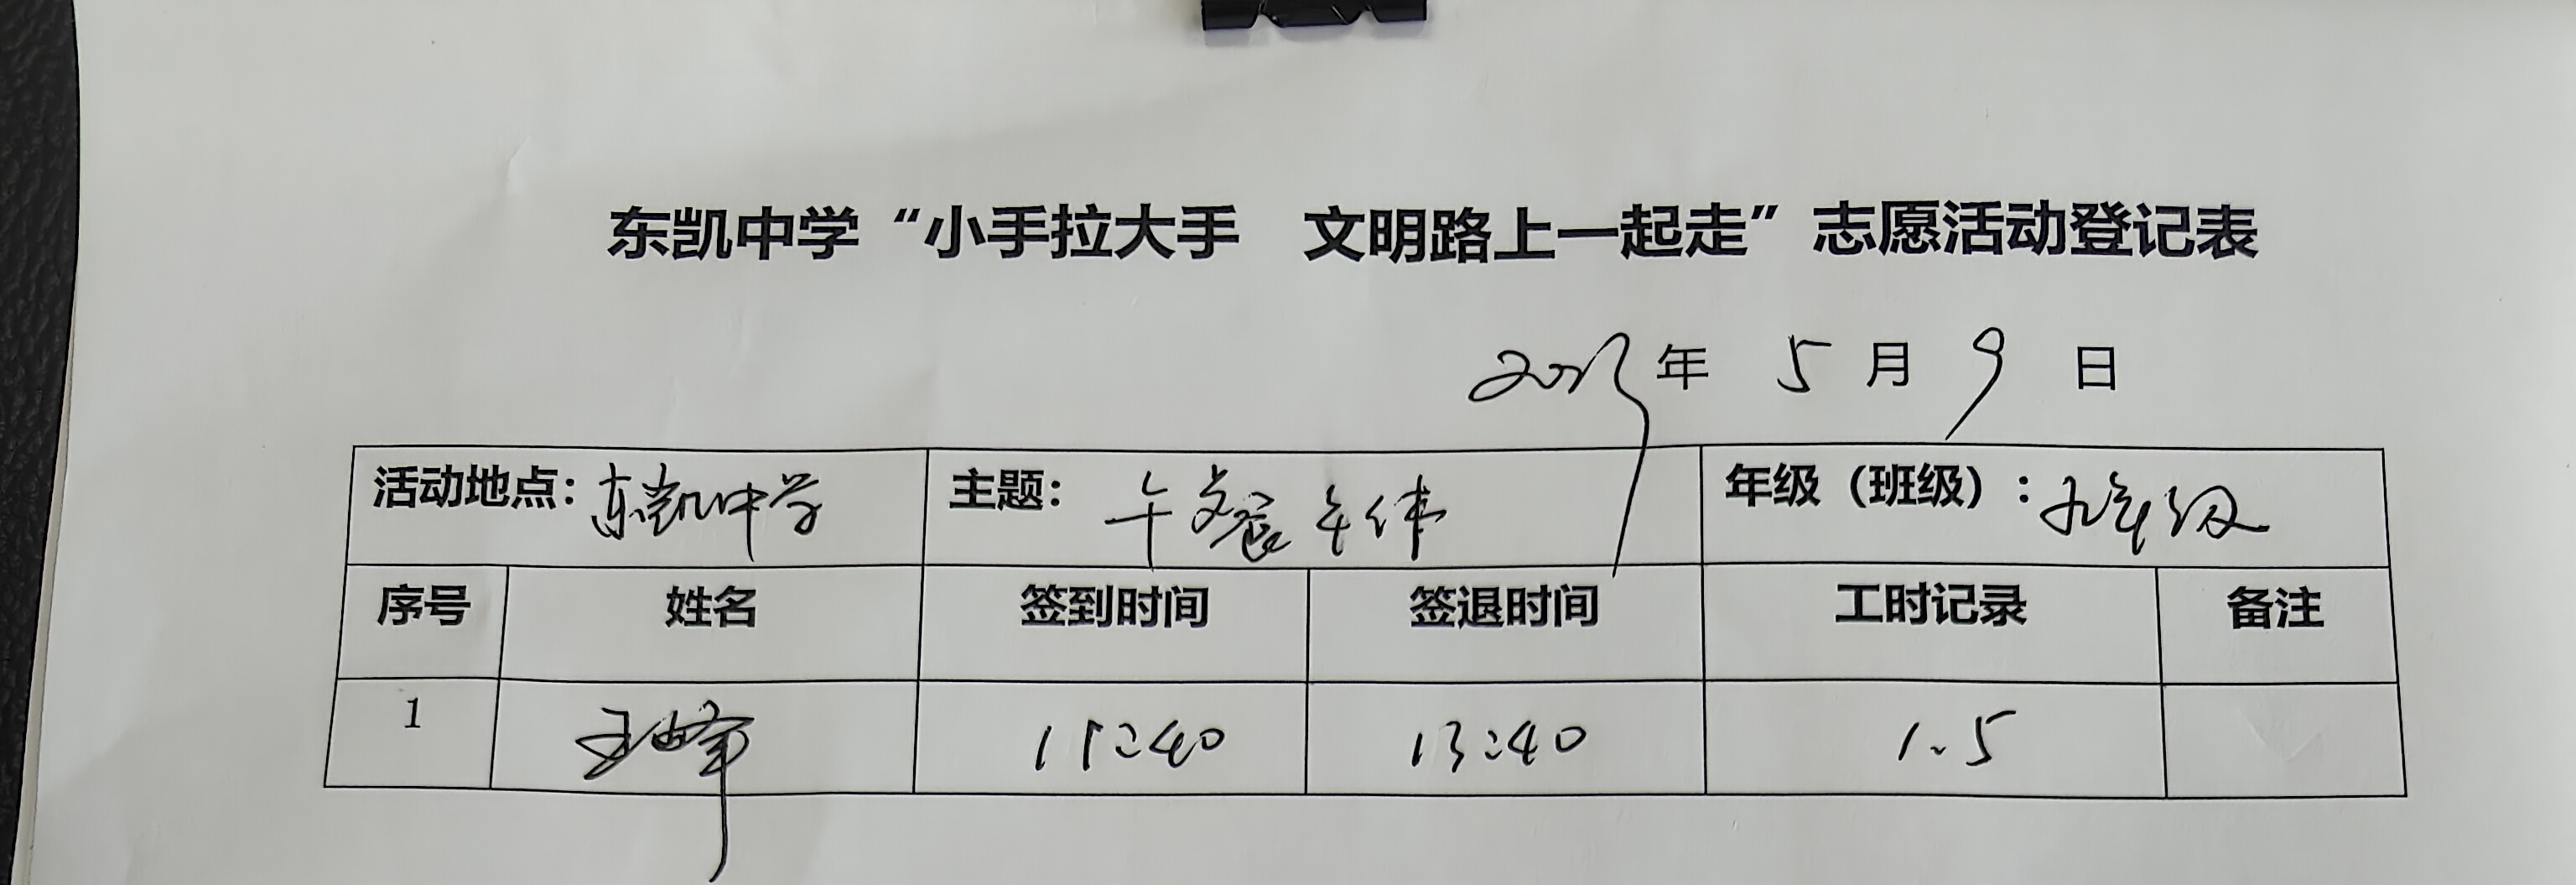 东凯中学“小手拉大手 文明路上一起走”志愿活动登记表
年 5 月 9 日
活动地点：东凯中学 主题：午 年级（班级）：九年级
序号 姓名 签到时间 签退时间 工时记录 备注
1 王 11:40 13:40 1.5